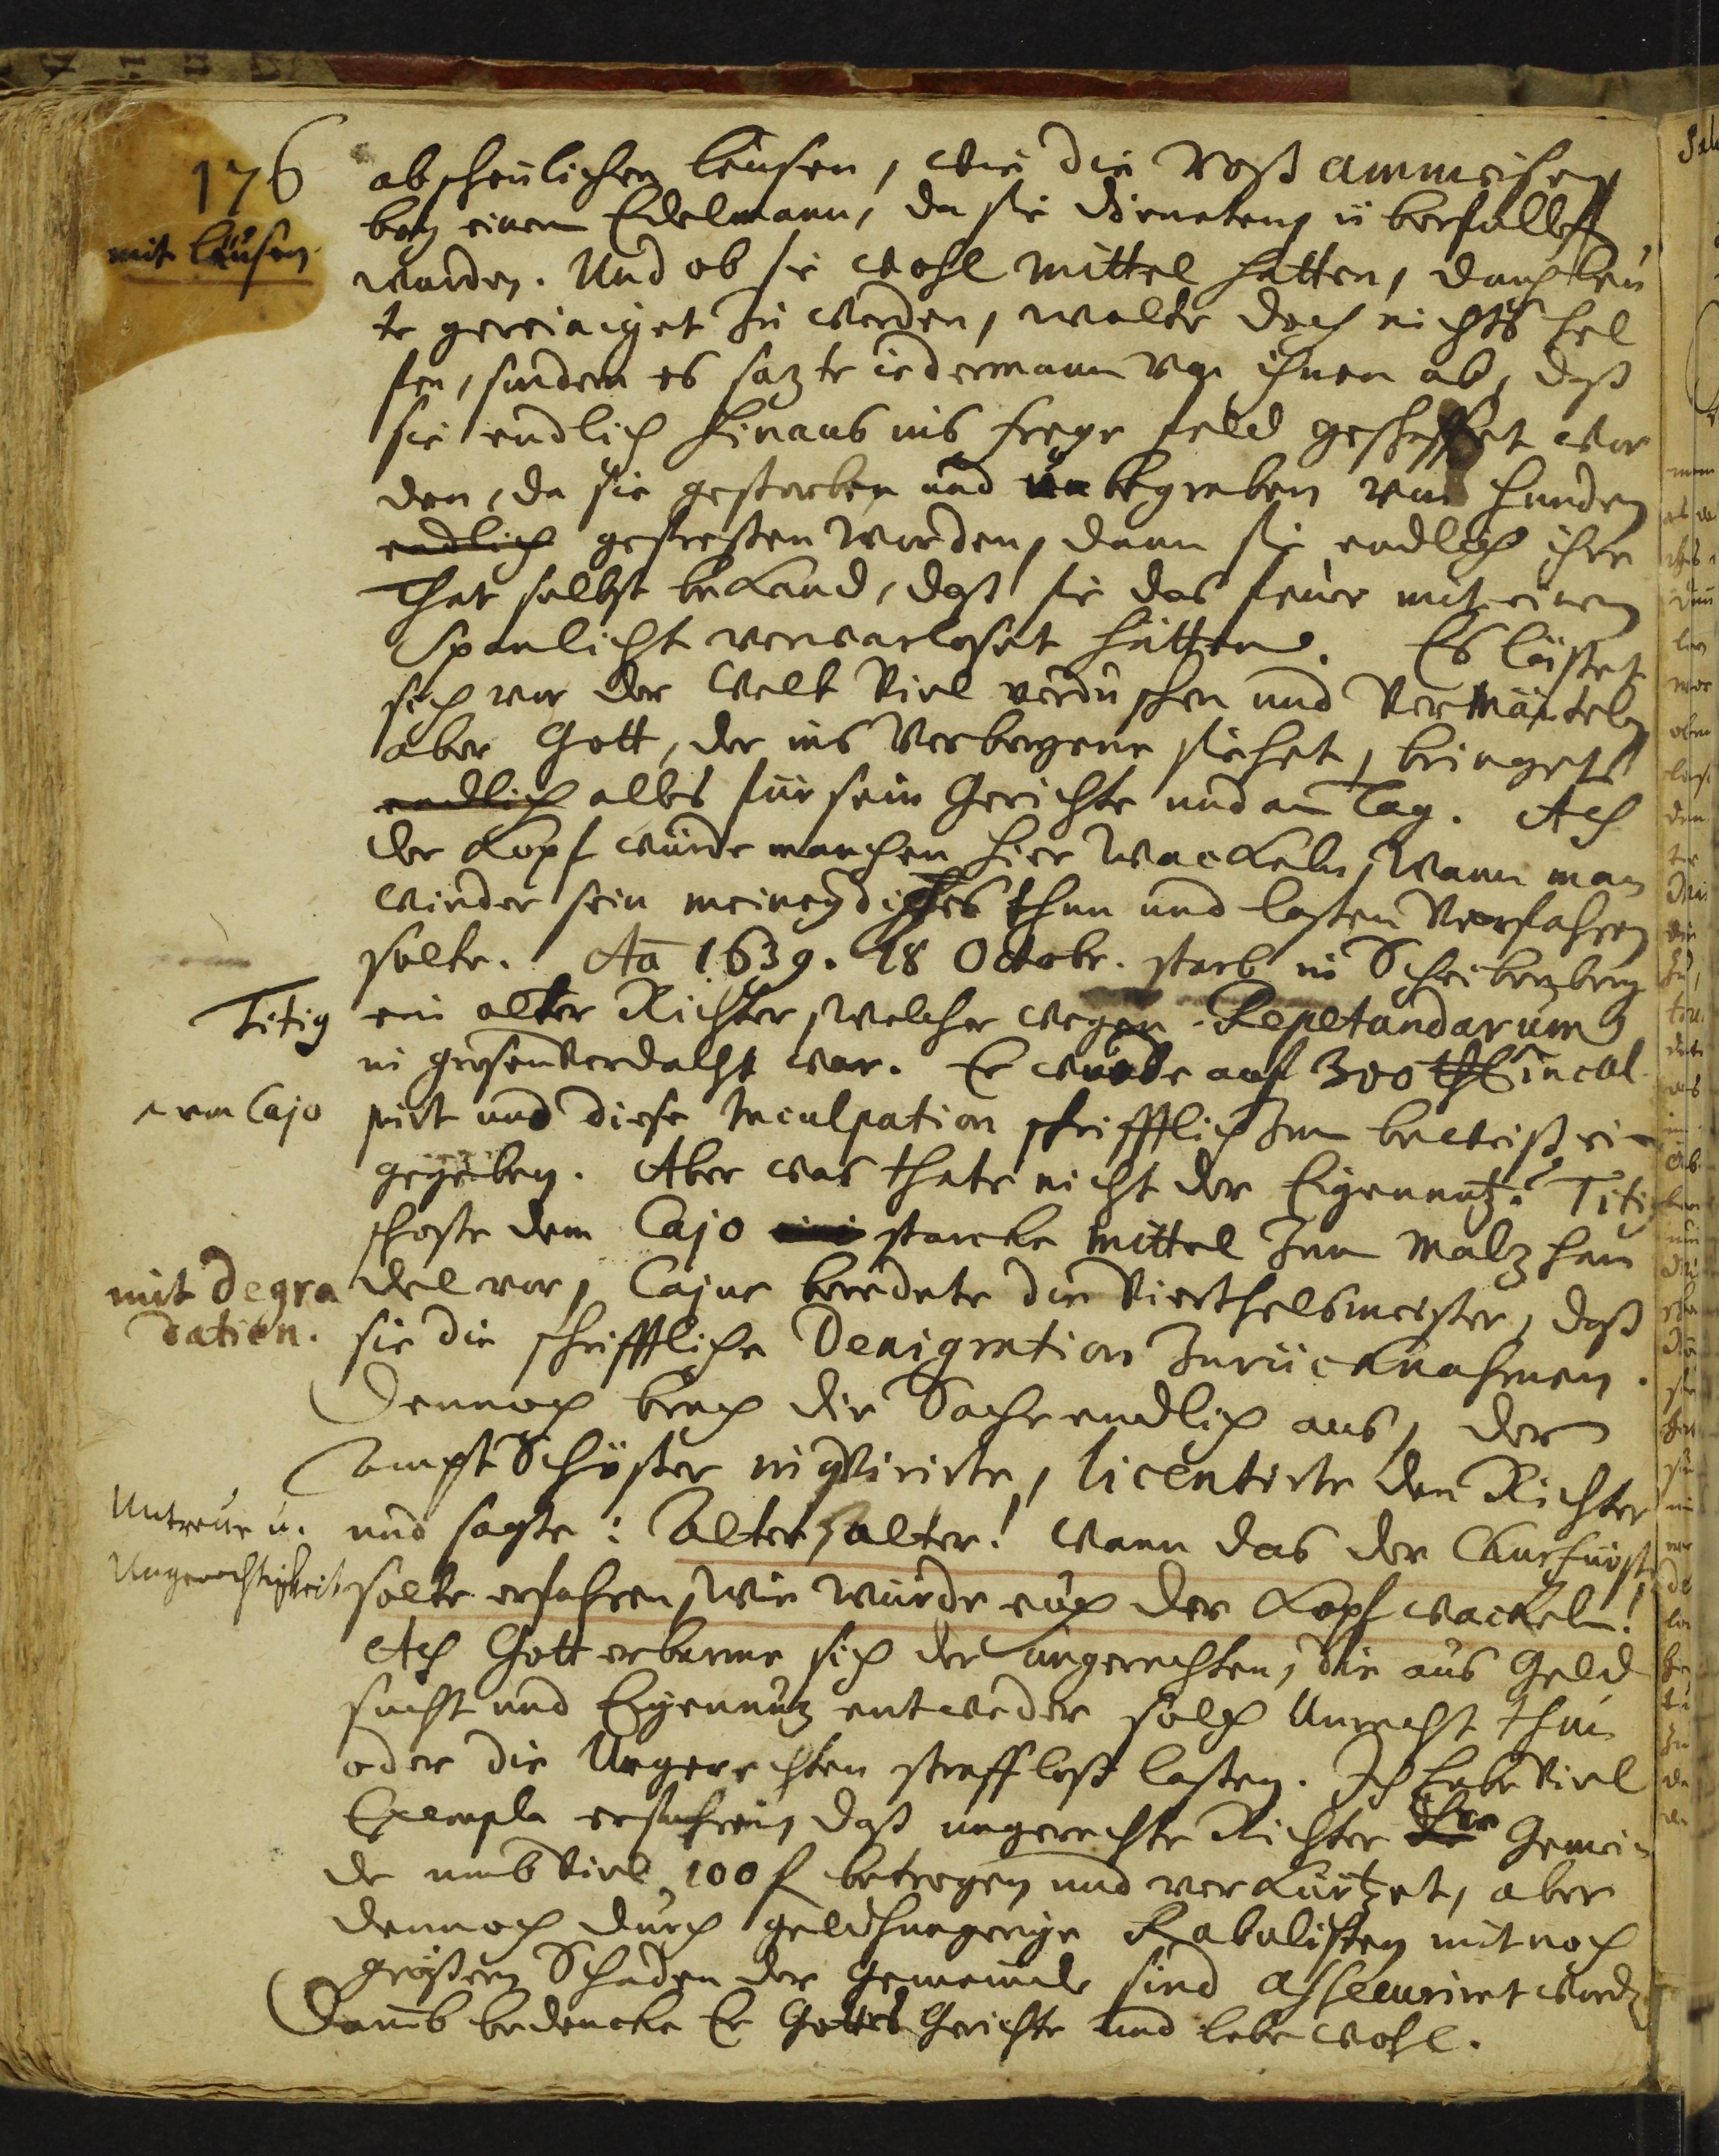 176
mit läusen.
abscheulichen leusen, wie die Roß ammeisen
bey einem Edelmann, da sie dieneten, überfallen
wurden. Und ob sie wohl mittel hatten, durch leu
te gereiniget zu werden, wolte doch nichts hel
fen, sondern es satzte iederman von ihnen ab, daß
sie endlich hinaus ins freye feld geschaffet wor
den, da sie gestorben und unbegraben von hunden
endlich gefressen worden, dann sie endlich ihre
That selbst bekand, daß sie das feuer mit einem
Spanlicht verwarloset hätten. Es läisset
sich vor der Welt viel verduschen und vermänteln
aber Gott, der ins Verborgene siehet, bringets
endlich alles für sein Gerichte und an Tag. Ach
der Kopf würde manchen hier wackeln, wann man
wieder sein meineydiges thun und lassen verfahren
solte. Ao 1639. 18 Octobr. starb in Scheibenberg
Titig
ein alter Richter, welcher wegen Repetundarum
in grosen Verdacht war. Er wurde auf 300 thl incul
von Cajo
pirt und diese Inculpation schrifftlich zum beweiß ein
gegeben. Aber was thate nicht der Eigennutz? Titig
schoße dem Cajo starcke mittel zum Maltz han
mit Degra
dation.
del vor, Cajus beredete die Viertheilsmeister, daß
sie die schrifftliche Denigration zurücknahmen.
Dennoch brach die Sache endlich aus, der
Ampt Schößer inqvirirte, licentirte den Richter
Untreue u.
Ungerechtigkeit
und sagte: Alter, alter! wann das der Churfürst
solte erfahren, wie würde euch der Kopf wackeln!
Ach Gott erbarme sich der ungerechten, die aus Geld
sucht und Eigennutz entweder solch Unrecht thun
oder die Ungerechten straffloß lassen. Ich habe viel
Exempla erfahren, daß ungerechte Richter die Gemei-
de umb viel 100 f betrogen und verkürtzet, aber
dennoch durch geldhungerige Kabalisten mit noch
größern Schaden der Gemeinde sind assecuriret word
Darumb bedencke Er Gottes Gerichte und lebe wohl.